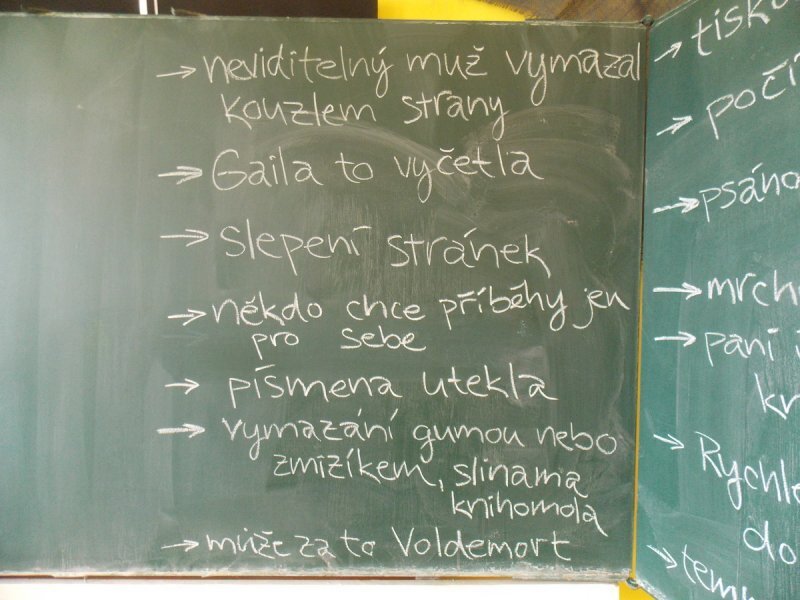 → neviditelný muž vymazal
kouzlem strany
→ Gaila to vyčetla
→ slepení stránek
→ někdo chce příběhy jen
pro sebe
→ písmena utekla
→ vymazání gumou nebo
zmizíkem, slinama
knihomola
→ může za to Voldemort
→
→
→
→
→ paní
→ Rychle
do
→